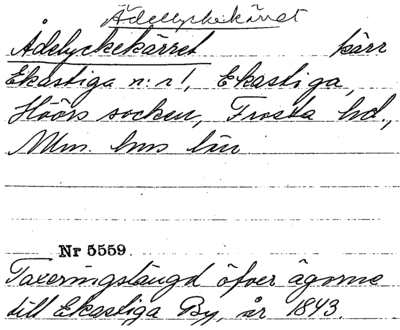 Ädellyckekärret
Ådelyckekärret kärr
Ekastiga n:r 1, Ekastiga,
Höörs socken, Frosta hd.,
Mlm. hus län
Nr 5559
Taxeringslängd öfver ägorne
till Ekastiga By, år 1843.